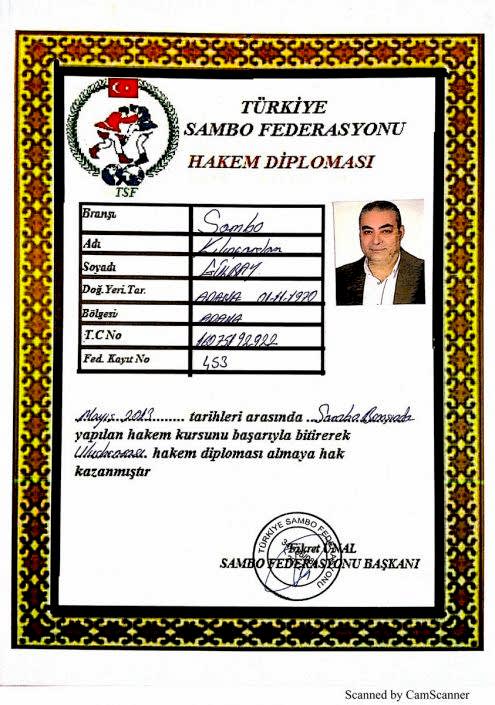 TÜRKİYE
SAMBO FEDERASYONU
HAKEM DİPLOMASI
TSF
Branşı Sambo
Adı Kılıçarslan
Soyadı GÜLBAY
Doğ.Yeri.Tar. ADANA 01.11.1970
Bölgesi ADANA
T.C No
Fed. Kayıt No 453
Mayıs 2013......... tarihleri arasında ..Sambo
yapılan hakem kursunu başarıyla bitirerek
Uluslararası. hakem diploması almaya hak
kazanmıştır
TÜRKİYE SAMBO FEDERASYONU
Fikret ÜNAL
SAMBO FEDERASYONU BAŞKANI
Scanned by CamScanner